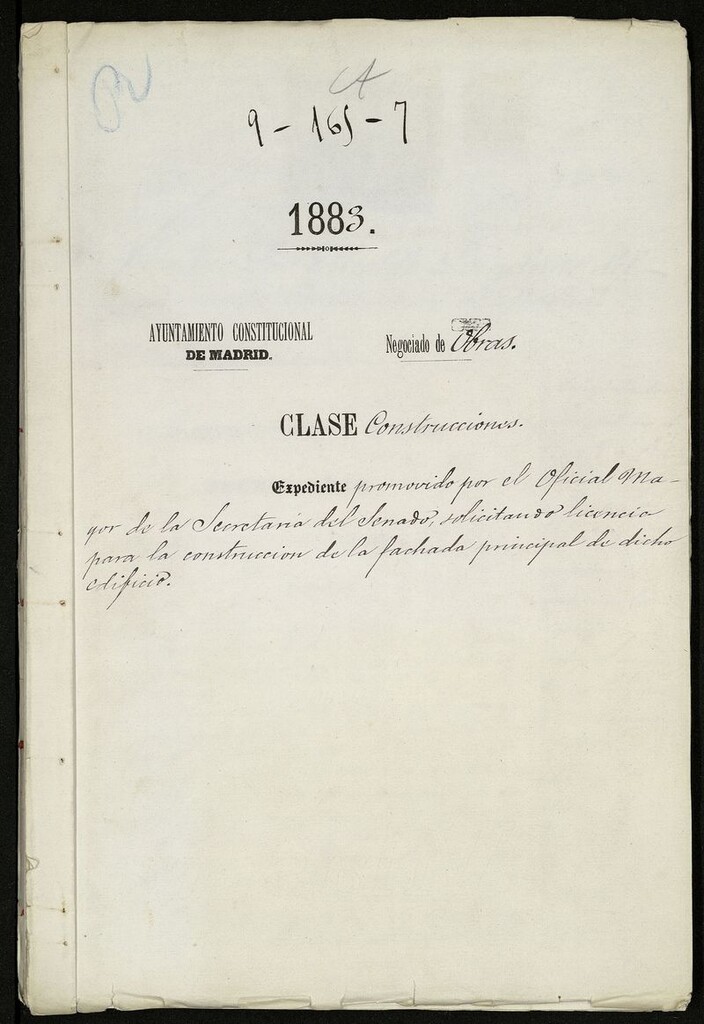 A
9-165-7
1883.
AYUNTAMIENTO CONSTITUCIONAL
DE MADRID.
Negociado de Obras.
CLASE Construcciones.
Expediente promovido por el Oficial Ma-
yor de la Secretaria del Senado, solicitando licencia
para la construccion de la fachada principal de dicho
edificio.